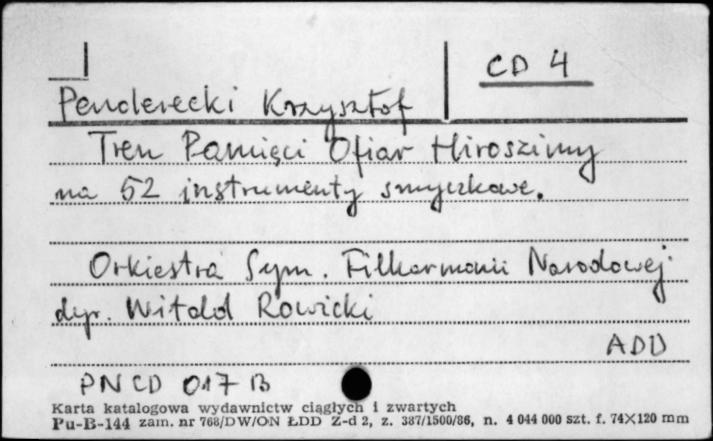 CD 4
Penderecki Krzysztof
Tren Pamięci Ofiar Hiroszimy
na 52 instrumenty smyczkowe.
Orkiestra Sym. Filharmonii Narodowej
dyr. Witold Rowicki
ADD
PNCD 017 B
Karta katalogowa wydawnictw ciągłych i zwartych
Pu-B-144 zam. nr 768/DW/ON ŁDD Z-d 2, z. 387/1500/86, n. 4 044 000 szt. f. 74×120 mm